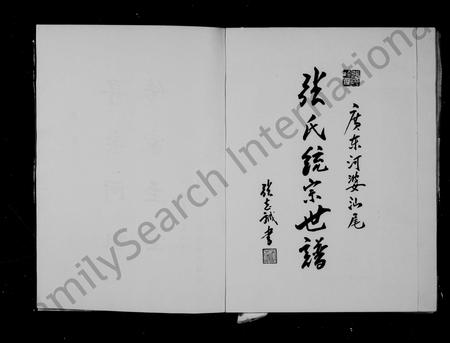 廣东河婆汕尾
張氏統宗世譜
張志誠書
FamilySearch International